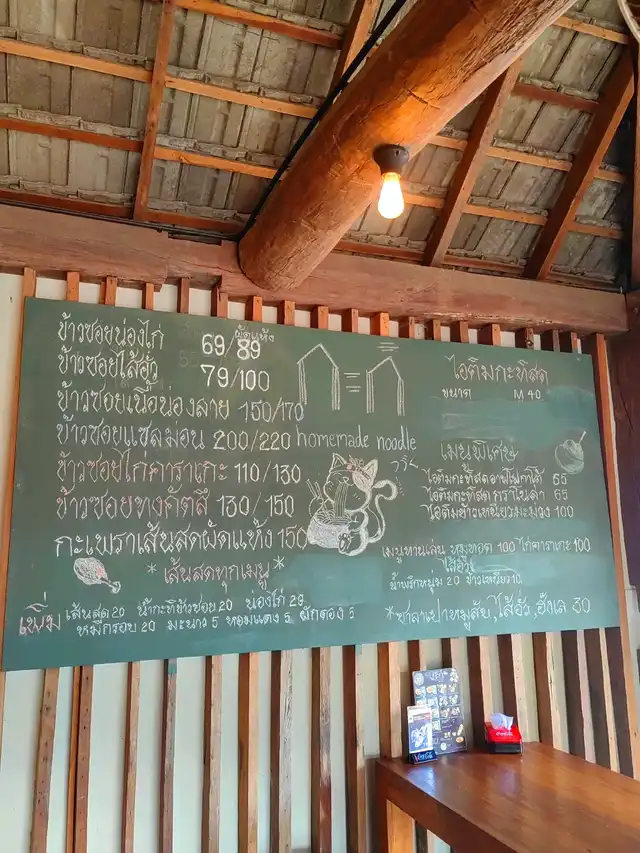 ข้าวซอยน่องไก่ 69/89 ผัดแห้ง
ข้าวซอยไส้อั่ว 79/100
ข้าวซอยเนื้อน่องลาย 150/170
ข้าวซอยแซลม่อน 200/220
ข้าวซอยไก่คาราเกะ 110/130
ข้าวซอยทงคัตสึ 130/150
กะเพราเส้นสดผัดแห้ง 150
*เส้นสดทุกเมนู*
เพิ่ม เส้นสด 20 น้ำกะทิข้าวซอย 20 น่องไก่ 29
หมี่กรอบ 20 มะนาว 5 หอมแดง 5 ผักดอง 5
homemade noodle
ไอติมกะทิสด
ขนาด M 40
เมนูพิเศษ
ไอติมกะทิสดอาฟโฟกาโต้ 65
ไอติมกะทิสดกราโนล่า 65
ไอติมข้าวเหนียวมะม่วง 100
เมนูทานเล่น หมูทอด 100 ไก่คาราเกะ 100
ไส้อั่ว
น้ำพริกหนุ่ม 20 ข้าวเหนียว 10
*ซาลาเปาหมูสับ, ไส้อั่ว, ฮังเล 30